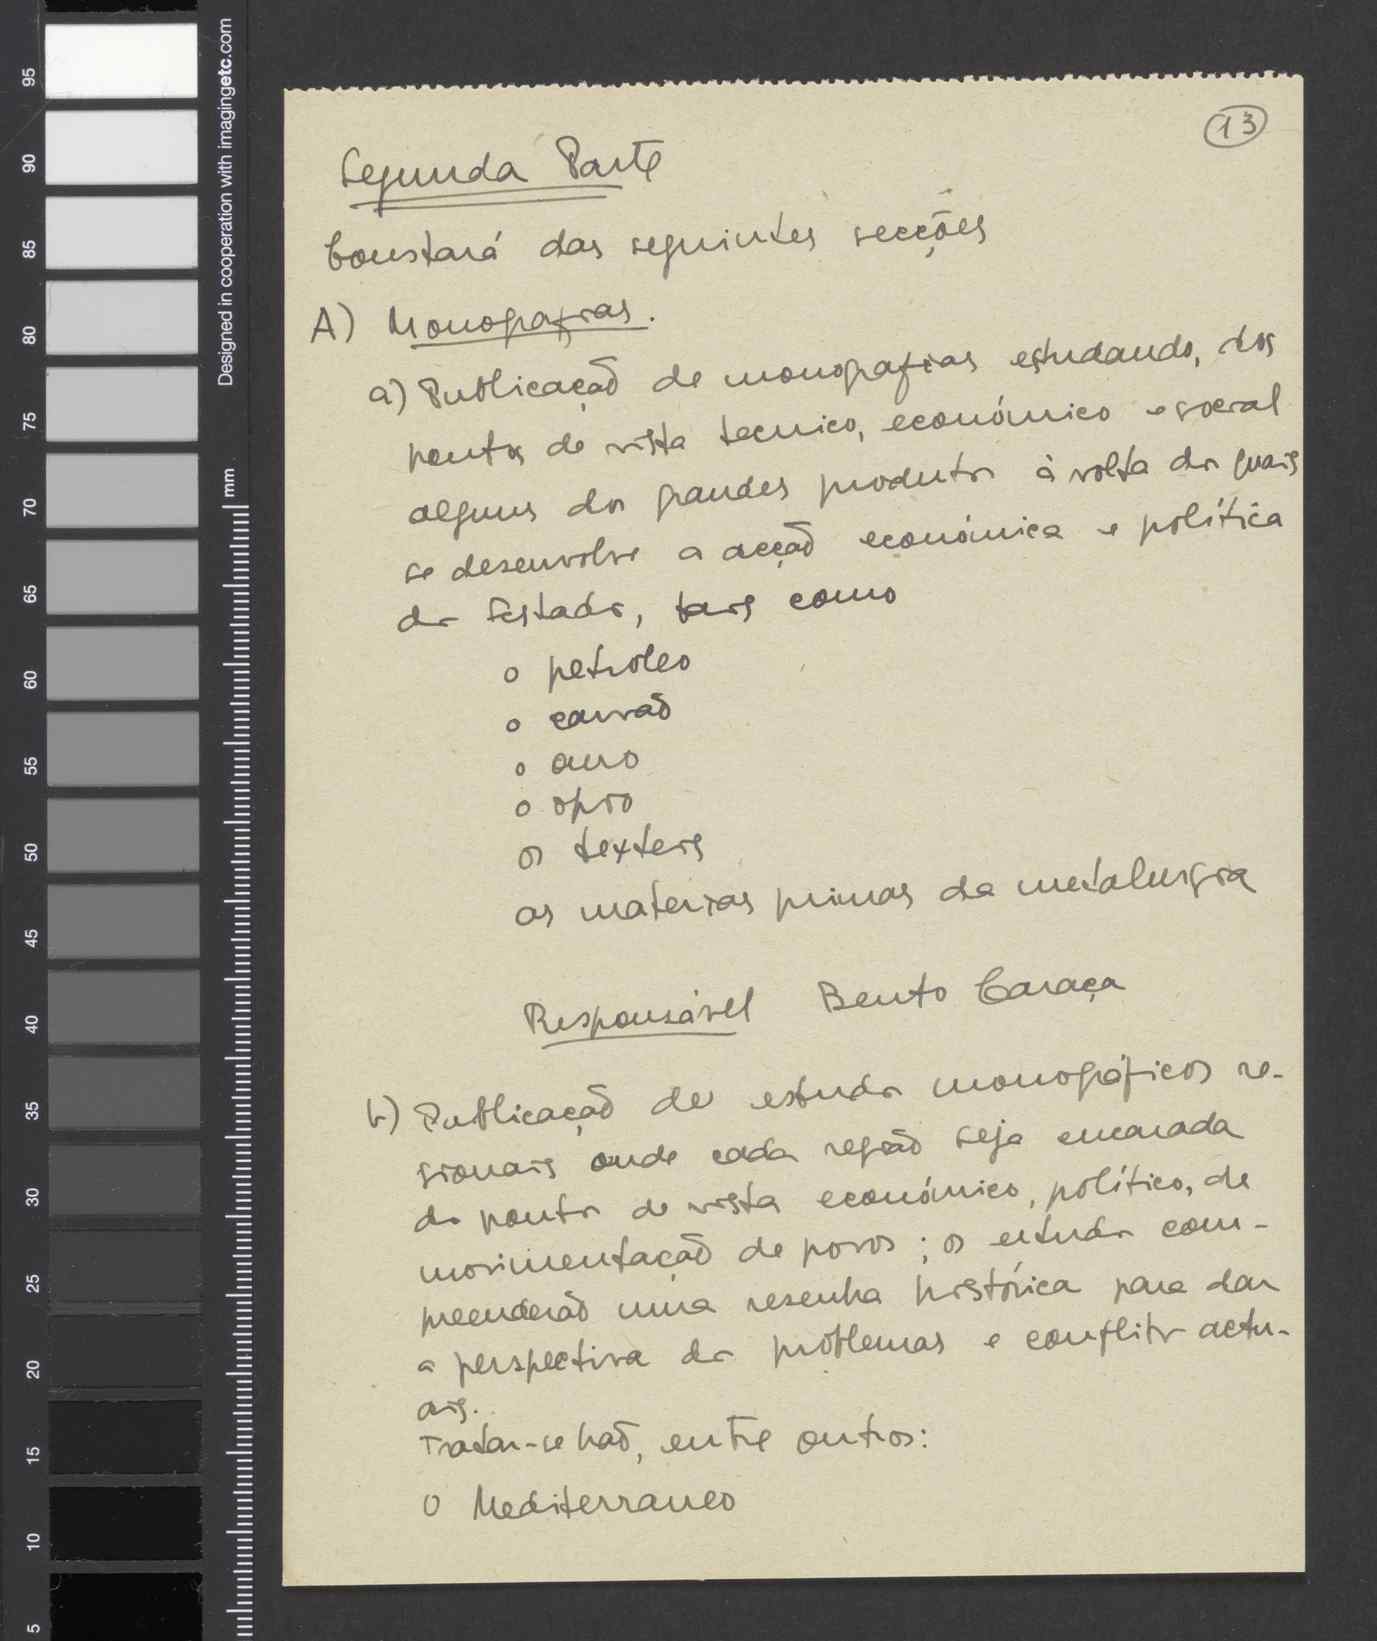 13
Segunda Parte
Constará das seguintes secções
A) Monografias.
a) Publicação de monografias estudando, dos
pontos de vista tecnico, económico e social
alguns dos grandes produtos à volta dos quais
se desenvolve a acção económica e política
dos Estados, tais como
o petroleo
o carvão
o ouro
o ópio
os texteis
as materias primas da metalurgia
Responsável Bento Caraça
b) Publicação de estudos monográficos re-
gionais onde cada região seja encarada
do ponto de vista económico, político, de
movimentação de povos; os estudos com-
preenderão uma resenha histórica para dar
a perspectiva dos problemas e conflitos actu-
ais.
Tratar-se hão, entre outros:
O Mediterraneo
Designed in cooperation with imagingetc.com
mm
95
90
85
80
75
70
65
60
55
50
45
40
35
30
25
20
15
10
5